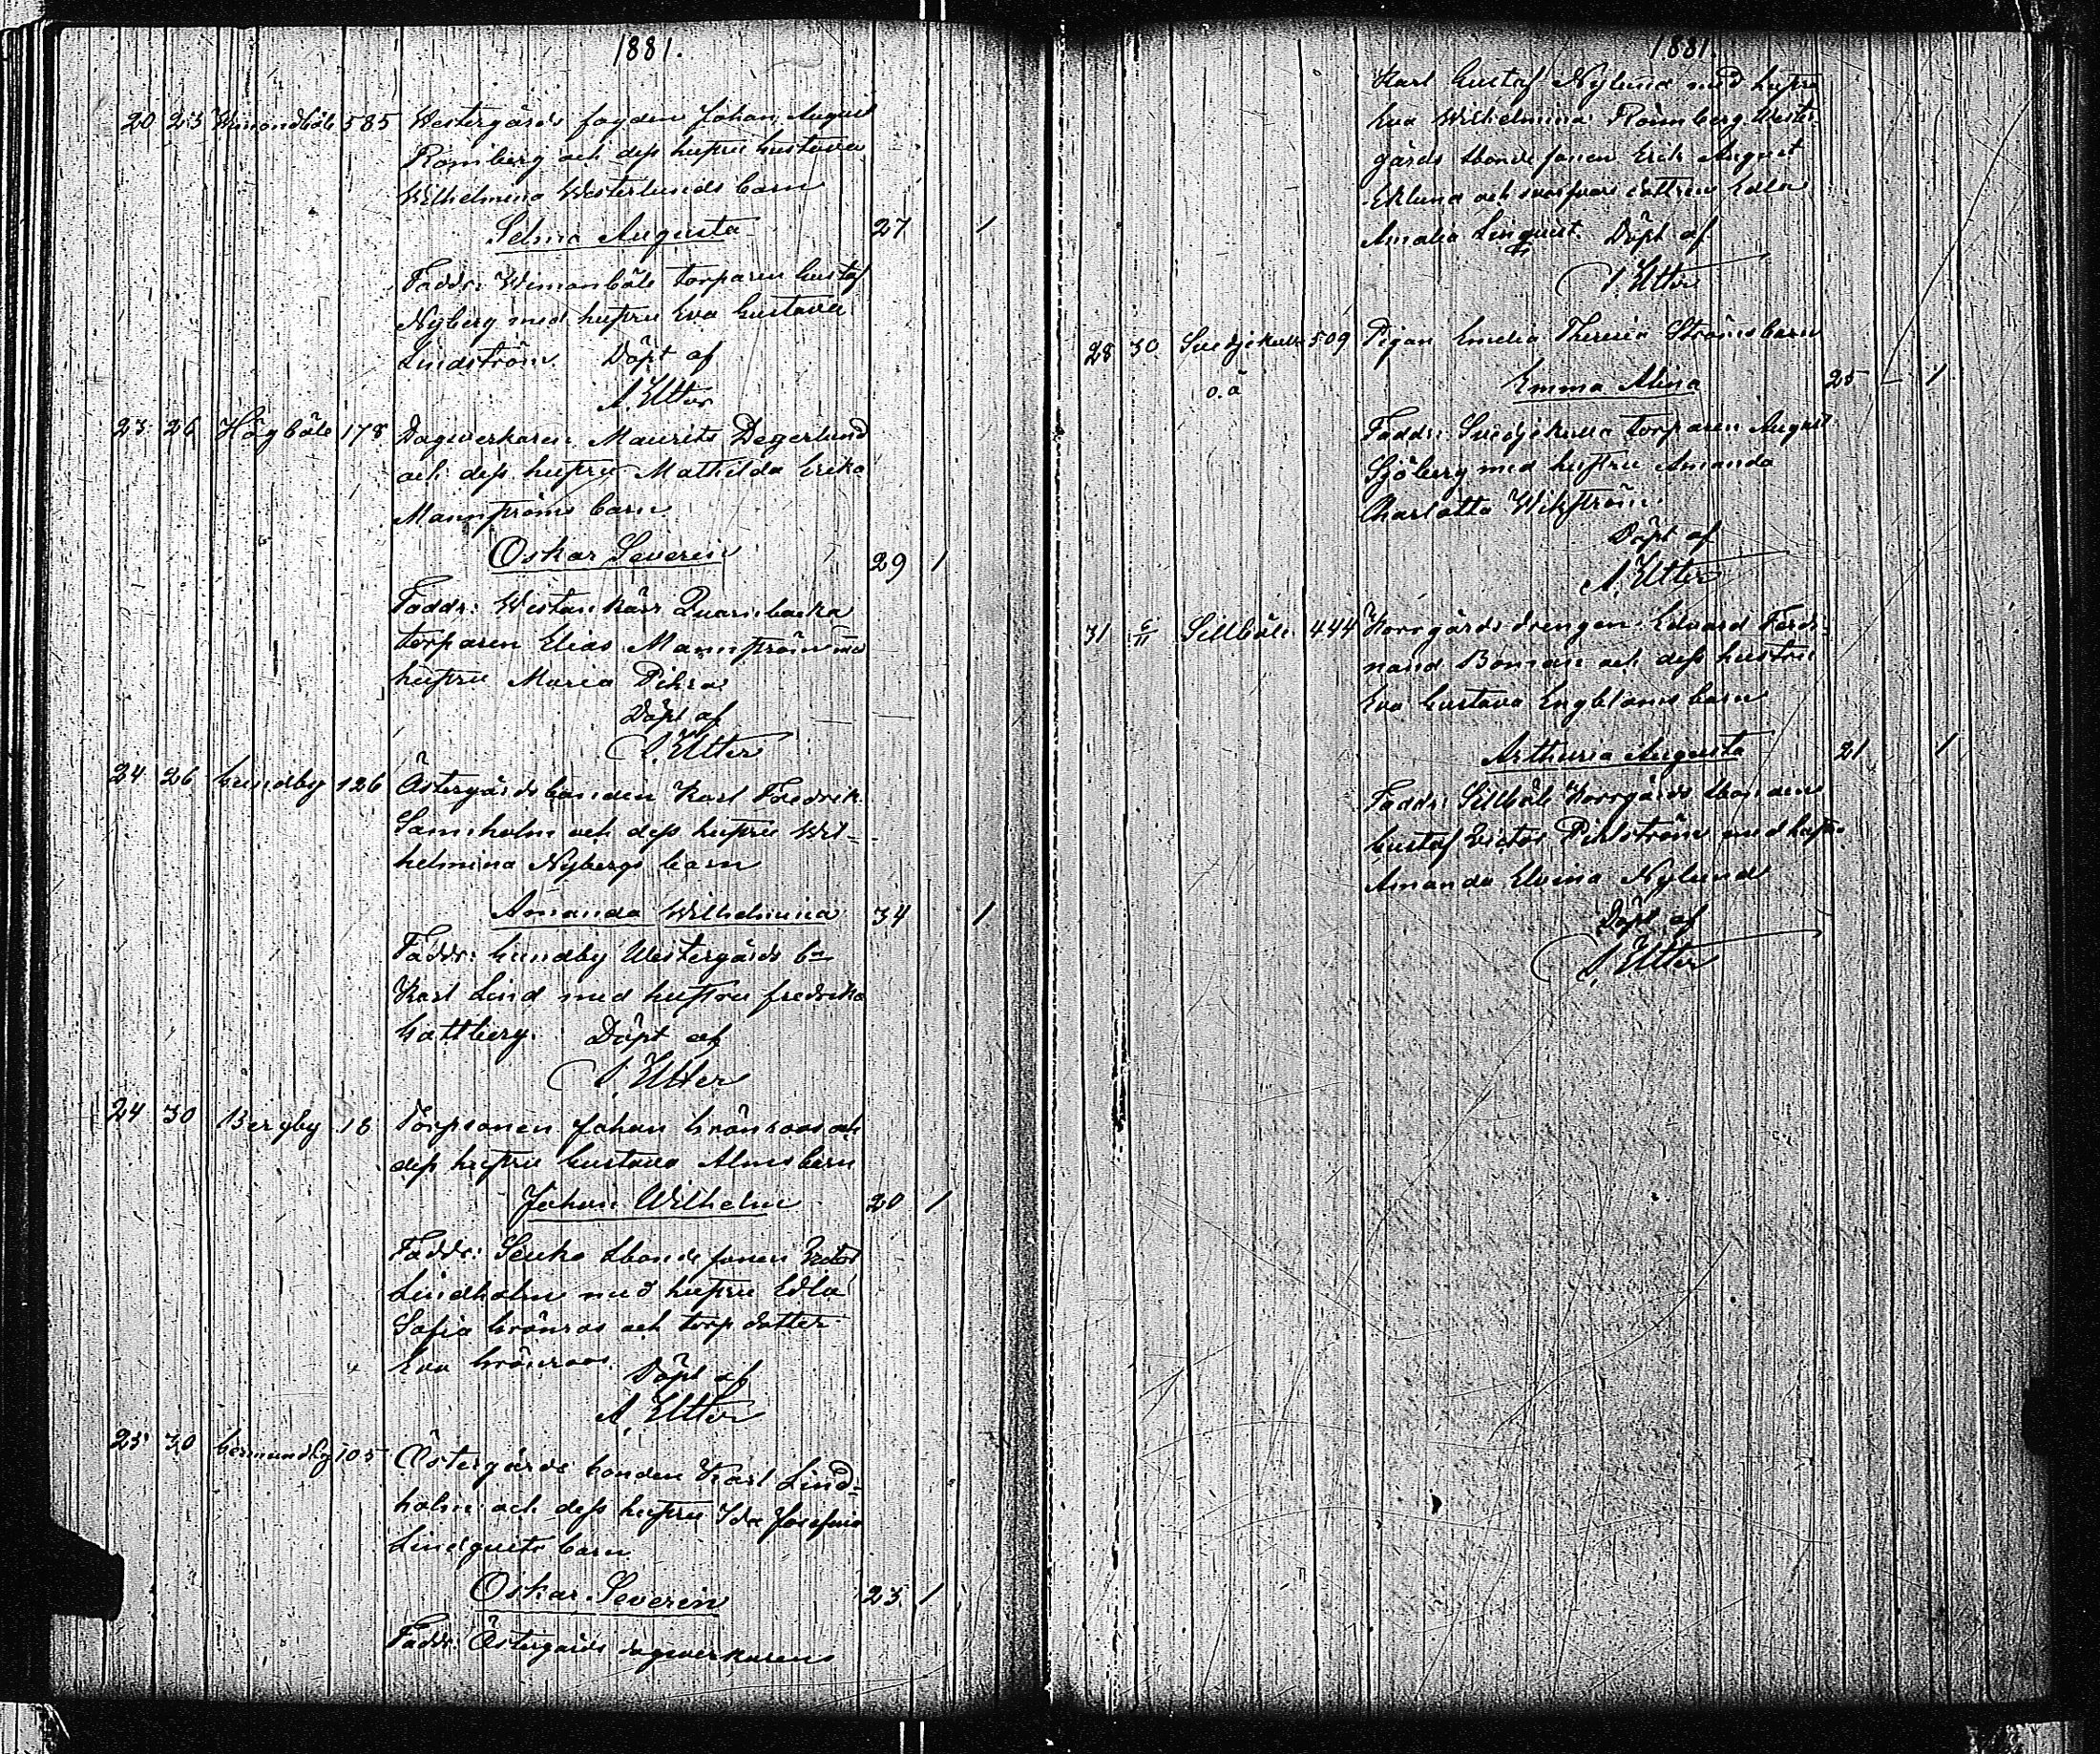 1881.
20 23 Wimonböle 585 Westergårds fogden Johan August
Römberg och dess hustru Gustava
Wilhelmina Westerlunds barn
Selma Augusta 27 1
Faddr: Wimonböle torparen Gustaf
Nyberg med hustru Eva Gustava
Lindström. Döpt af
A. Utter
23 26 Högböle 178 Dagsverkaren Maurits Degerlund
och dess hustru Mathilda Erika
Mannströms barn
Oskar Severin 29 1
Faddr: Westankärr Quarnbacka
torparen Elias Mannström med
hustru Maria
Döpt af
A. Utter
24 26 Gundby 126 Östergårds bonden Karl Fredrik
Samsholm och dess hustru Wil-
helmina Nybergs barn
Amanda Wilhelmina 34 1
Faddr: Gundby Westergårds bn
Karl Lind med hustru Fredrika
Gottberg. Döpt af
A. Utter
24 30 Bergby 18 Torpsonen Johan Grönroos och
dess hustru Gustava Alms barn
Johan Wilhelm 20 1
Faddr: bonde sonen Victor
Lindholm med hustru Edla
Sofia Grönros och torp dotter
Eva Grönroos. Döpt af
A. Utter
25 30 Germundby 105 Östergårds bonden Karl Lind-
holm och dess hustru Ida Josefina
Lindqvists barn
Oskar Severin 23 1
Faddr: Östergårds dagsverkaren
1881.
Karl Gustaf Nylund med hustru
Eva Wilhelmina Römberg, Wester-
gårds bonde sonen Erik August
Eklund och dottren Edla
Amalia Linquist. Döpt af
A. Utter
28 30 Svedjekulla 509 Pigan Emelia Theresia Ströms barn
o.ä Emma Alina 25 – 1
Faddr: Svedjekulla torparen August
Sjöberg med hustru Amanda
Charlotta Wikström.
Döpt af
A. Utter
31 6/11 Sillböle 444 Norrgårds drengen Edvard Ferdi-
nand Boman och dess hustru
Eva Gustava Engbloms barn
Arthuria Augusta 21 1
Faddr: Sillböle Norrgårds bonden
Gustaf Victor Pihlström med hustru
Amanda Elvina Nylund
Döpt af
A. Utter